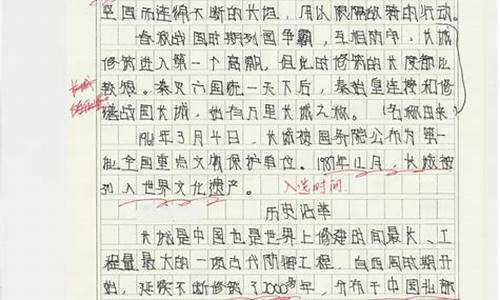 坚固而连绵不断的长垣,用以限隔敌骑的行动。
春秋战国时期列国争霸,互相防守,长城
修筑进入第一个高潮,但此时修筑的长度都比
较短。秦灭六国统一天下后,秦始皇连接和修
缮战国长城,始有万里长城之称。(名称由来)
长城
1961年3月4日,长城被国务院公布为第一
批全国重点文物保护单位。1987年12月,长城被
列入世界文化遗产。 入选时间
历史沿革
长城是中国也是世界上修建时间最长、工
程量最大的一项古代防御工程,自西周时期开
始,延续不断修筑了2000多年,分布于中国北部